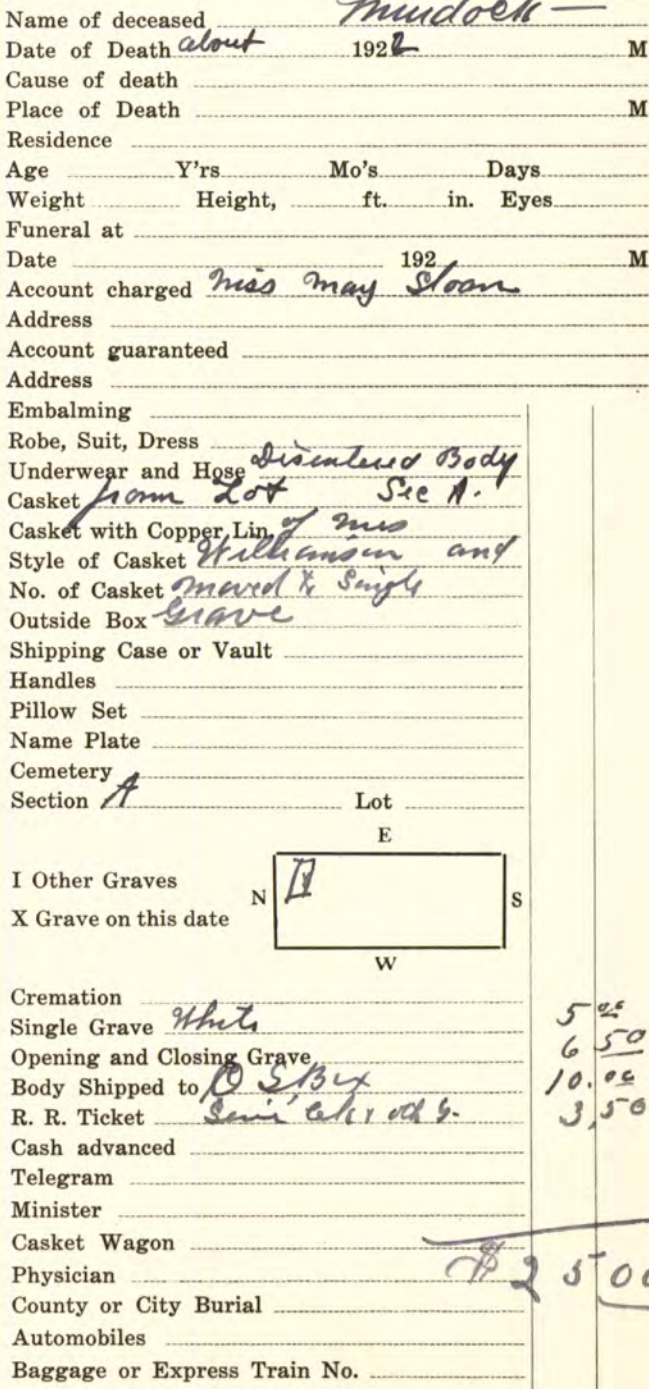 Name of deceased Murdock —
Date of Death about 1922 M
Cause of death
Place of Death M
Residence
Age Y'rs Mo's Days
Weight Height, ft. in. Eyes
Funeral at
Date 192 M
Account charged Miss May Sloan
Address
Account guaranteed
Address
Embalming
Robe, Suit, Dress
Underwear and Hose Disentered Body
Casket from Lot Sec A.
Casket with Copper Lin of Mrs
Style of Casket Williamson and
No. of Casket moved to Single
Outside Box Grave
Shipping Case or Vault
Handles
Pillow Set
Name Plate
Cemetery
Section A Lot
E
I Other Graves
N S
X Grave on this date
W
Cremation
Single Grave White 5 00
Opening and Closing Grave 6 50
Body Shipped to O S Box 10.00
R. R. Ticket 3,50
Cash advanced
Telegram
Minister
Casket Wagon
Physician $25 00
County or City Burial
Automobiles
Baggage or Express Train No.